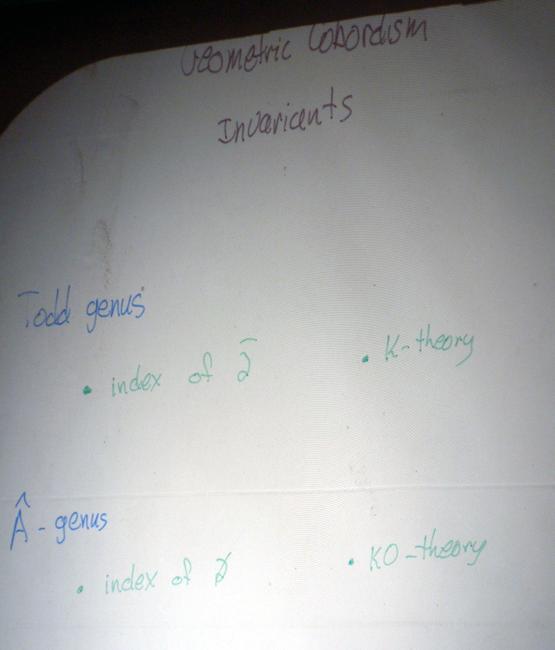 Geometric Cobordism
Invariants
Todd genus
• index of ∂̄
• K-theory
Â-genus
• index of ∂̸
• KO-theory